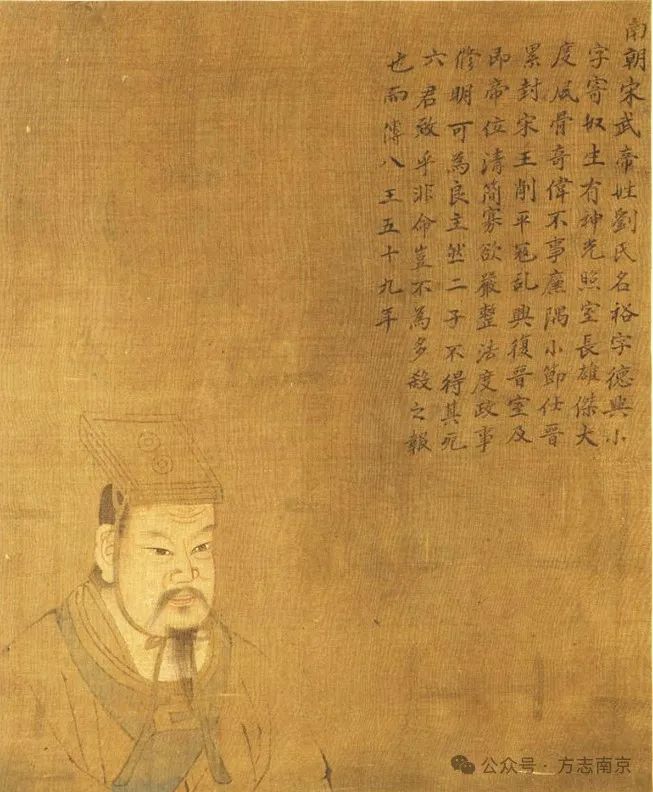 南朝宋武帝姓劉氏名裕字德輿小
字寄奴生有神光照室長雄傑大
度風骨奇偉不事廉隅小節仕晉
累封宋王削平冦乱興復晉室及
即帝位清簡寡欲嚴整法度政事
修明可為良主然二子不得其死
六君致乎非命豈不為多殺之報
也而傳八王五十九年
公众号·方志南京